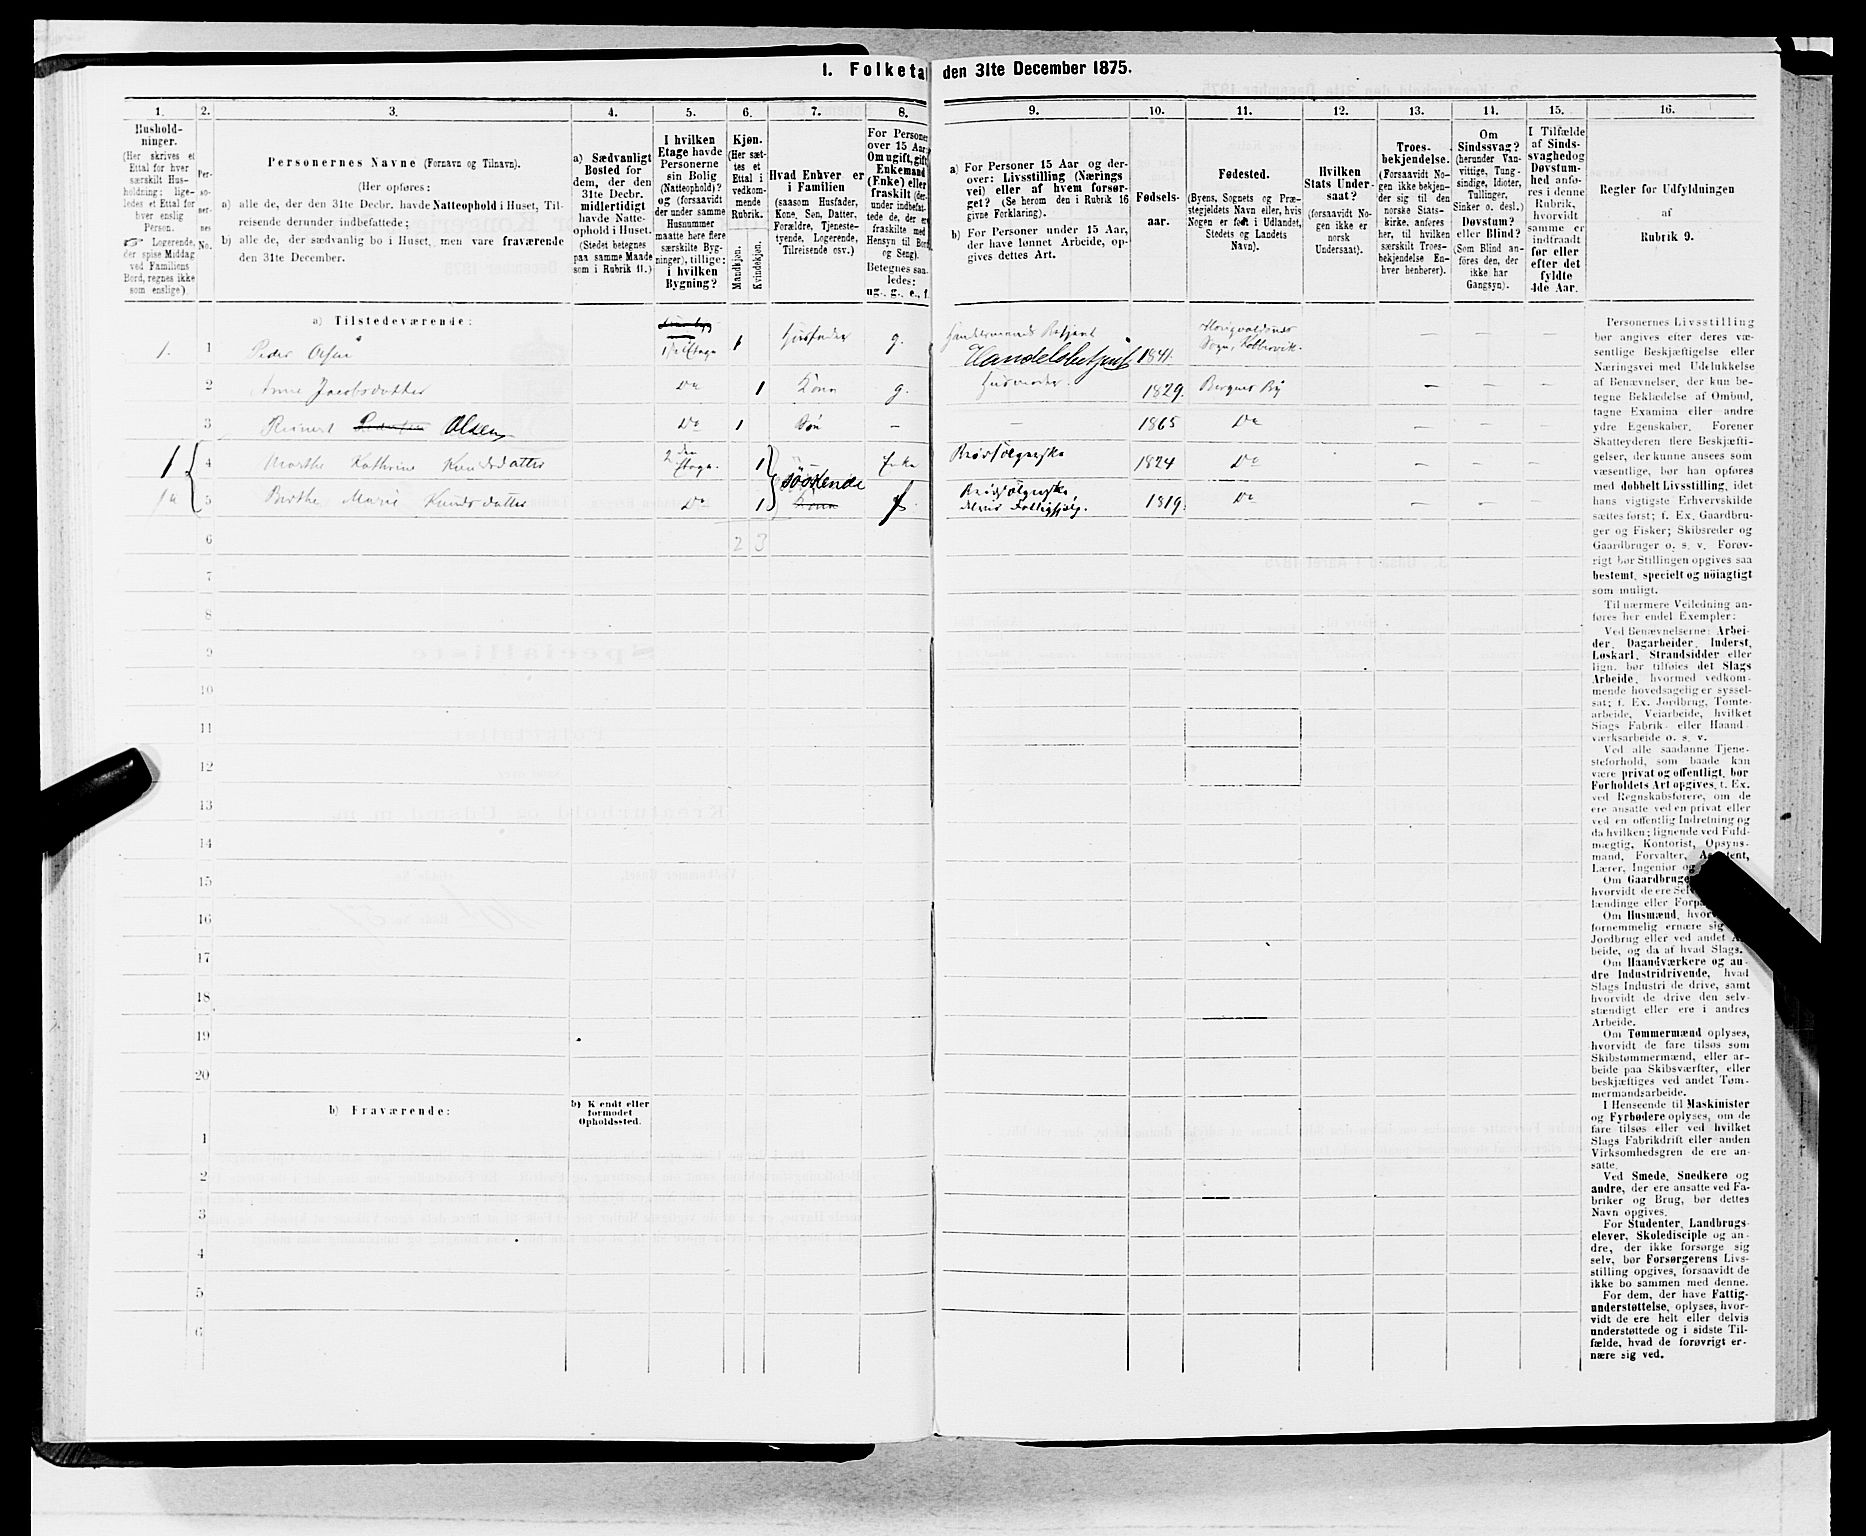 1. Folketal den 31te December 1875.
1.
2.
3.
4.
5.
6.
7.
8.
Hushold-
ninger.
(Her skrives et
Ettal for hver
særskilt Hus-
holdning; lige-
ledes et Ettal for
hver enslig
Person.
☞ Logerende,
der spise Middag
ved Familiens
Bord, regnes ikke
som enslige).
Per-
so-
ner-
nes
No.
Personernes Navne (Fornavn og Tilnavn).
(Her opføres:
a) alle de, der den 31te Decbr. havde Natteophold i Huset, Til-
reisende derunder indbefattede;
b) alle de, der sædvanlig bo i Huset, men vare fraværende
den 31te December.
a) Sædvanligt
Bosted for
dem, der den
31te Decbr.
midlertidigt
havde Natte-
ophold i Huset.
(Stedet betegnes
paa samme Maade
som i Rubrik 11.)
I hvilken
Etage havde
Personerne
sin Bolig
(Natteophold)?
og (forsaavidt
der under samme
Husnummer
maatte høre flere
særskilte Byg-
ninger), tillige:
i hvilken
Bygning?
Kjøn.
(Her sæt-
tes et
Ettal i
vedkom-
mende
Rubrik.
Mandkjøn.
Kvindekjøn.
Hvad Enhver er
i Familien
(saasom Husfader,
Kone, Søn, Datter,
Forældre, Tjeneste-
tyende, Logerende,
Tilreisende osv.)
For Personer
over 15 Aar:
Om ugift, gift,
Enkemand
(Enke) eller
fraskilt (der-
under indbefat-
tede de, der ere
fraskilte med
Hensyn til Bord
og Seng).
Betegnes saa-
ledes:
ug., g., e., f.
9.
10.
11.
12.
13.
14.
15.
16.
a) For Personer 15 Aar og der-
over: Livsstilling (Nærings-
vei) eller af hvem forsør-
get? (Se herom den i Rubrik 16
givne Forklaring).
b) For Personer under 15 Aar,
der have lønnet Arbeide, op-
gives dettes Art.
Fødsels-
aar.
Fødested.
(Byens, Sognets og Præ-
stegjeldets Navn eller, hvis
Nogen er født i Udlandet,
Stedets og Landets
Navn).
Hvilken
Stats Under-
saat?
(forsaavidt No-
gen ikke er
norsk
Undersaat).
Troes-
bekjendelse.
(Forsaavidt No-
gen ikke bekjen-
der sig til den
norske Stats-
kirke, anføres
her, til hvilken
særskilt Troes-
bekjendelse En-
hver henhører).
Om
Sindssvag?
(herunder Van-
vittige, Tung-
sindige, Idioter,
Tullinger,
Sinker o. desl.)
Døvstum?
eller Blind?
(Som Blind an-
føres den, der
ikke har
Gangsyn).
I Tilfælde
af Sinds-
svaghed og
Døvstum-
hed anfø-
res i denne
Rubrik,
hvorvidt
samme er
indtraadt
før eller
efter det
fyldte
4de Aar.
Regler for Udfyldningen
af
Rubrik 9.
a) Tilstedeværende:
1. 1 Peder 1 Husfader g. Handelsbetjent 1841.
2 Anne Jacobsdatter Do 1 Kone g. Husmoder. 1829. Bergens By
3 Reinert Olsen Do 1 Søn 1865 Do
1 4 Marthe Kathrine Knudsdatter 2den Etage. 1 søskende Enke 1824 Do
5 Berthe Marie Knudsdatter Do 1 Kone 1819. Do
6 2 3
7
8
9
10
11
12
13
14
15
16
17
18
19
20
b) Fraværende:
b) Kjendt eller
formodet
Opholdssted.
1
2
3
4
5
6
Personernes Livsstilling
bør angives efter deres væ-
sentlige Beskjæftigelse eller
Næringsvei med Udelukkelse
af Benævnelser, der kun be-
tegne Beklædelse af Ombud,
tagne Examina eller andre
ydre Egenskaber. Forener
Skatteyderen flere Beskjæfti-
gelser, der kunne ansees som
væsentlige, bør han opføres
med dobbelt Livsstilling, idet
hans vigtigste Erhvervskilde
sættes først; f. Ex. Gaardbru-
ger og Fisker; Skibsreder og
Gaardbruger o. s. v. Forøv-
rigt bør Stillingen opgives saa
bestemt, specielt og nøiagtigt
som muligt.
Til nærmere Veiledning an-
føres her endel Exempler:
Ved Benævnelserne: Arbei-
der, Dagarbeider, Inderst,
Løskarl, Strandsidder eller
lign. bør tilføies det Slags
Arbeide, hvormed vedkom-
mende hovedsagelig er syssel-
sat; f. Ex. Jordbrug, Tomte-
arbeide, Veiarbeide, hvilket
Slags Fabrik- eller Haand-
værksarbeide o. s. v.
Ved alle saadanne Tjene-
steforhold, som baade kan
være privat og offentligt, bør
Forholdets Art opgives, f. Ex.
ved Regnskabsførere, om de
ere ansatte ved en privat eller
ved en offentlig Indretning og
da hvilken; lignende ved Fuld-
mægtig, Kontorist, Opsyns-
mand, Forvalter,
Lærer, Ingeniør og
Om Gaardbruge
hvorvidt de ere
lændinge eller
Om Husmænd,
fornemmelig ernære sig
Jordbrug eller ved andet
beide, og da af hvad Slags.
Om Haandværkere og an-
dre Industridrivende, hvad
Slags Industri de drive, samt
hvorvidt de drive den selv-
stændigt eller ere i andres
Arbeide.
Om Tømmermænd oplyses,
hvorvidt de fare tilsøs som
Skibstømmermænd, eller ar-
beide paa Skibsværfter, eller
beskjæftiges ved andet Tøm-
mermandsarbeide.
I Henseende til Maskinister
og Fyrbødere oplyses, om de
fare tilsøs eller ved hvilket
Slags Fabrikdrift eller anden
Virksomhedsgren de ere an-
satte.
Ved Smede, Snedkere og
andre, der ere ansatte ved Fa-
briker og Brug, bør dettes
Navn opgives.
For Studenter, Landbrugs-
elever, Skoledisciple og an-
dre, der ikke forsørge sig
selv, bør Forsørgerens Livs-
stilling opgives, forsaavidt de
ikke bo sammen med denne.
For dem, der have Fattig-
understøttelse, oplyses, hvor-
vidt de ere helt eller delvis
understøttede og i sidste Til-
fælde, hvad de forøvrigt er-
nære sig ved.